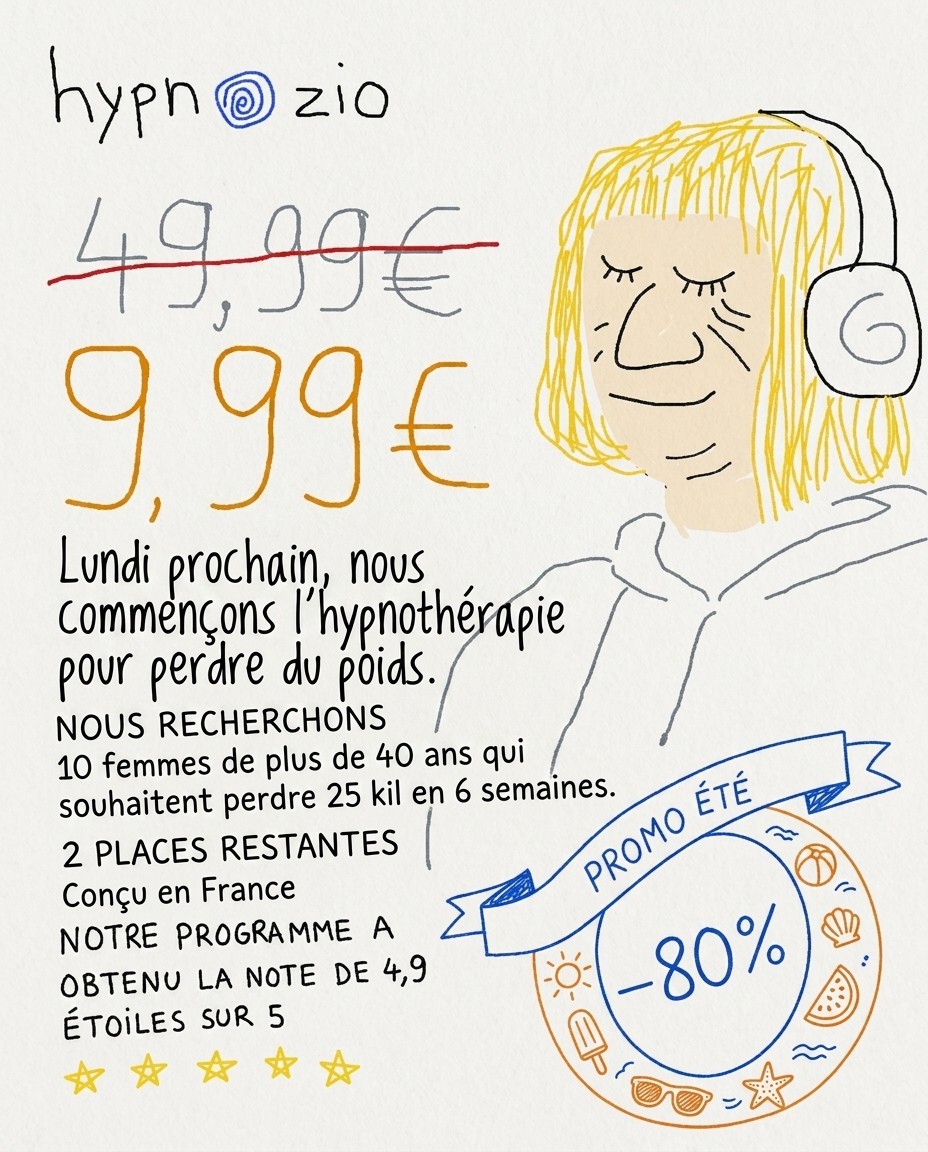 hypnozio
49,99€
9,99€
Lundi prochain, nous
commençons l'hypnothérapie
pour perdre du poids.
NOUS RECHERCHONS
10 femmes de plus de 40 ans qui
souhaitent perdre 25 kil en 6 semaines.
2 PLACES RESTANTES
Conçu en France
NOTRE PROGRAMME A
OBTENU LA NOTE DE 4,9
ÉTOILES SUR 5
PROMO ÉTÉ
-80%